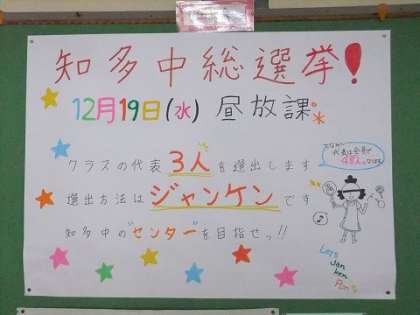 知多中総選挙!
12月19日(水) 昼放課
クラスの代表3人を選出します
選出方法はジャンケンです
知多中の"センター"を目指せっ!!
代表は全員で
48人
Let's
Jan
Ken
Pon